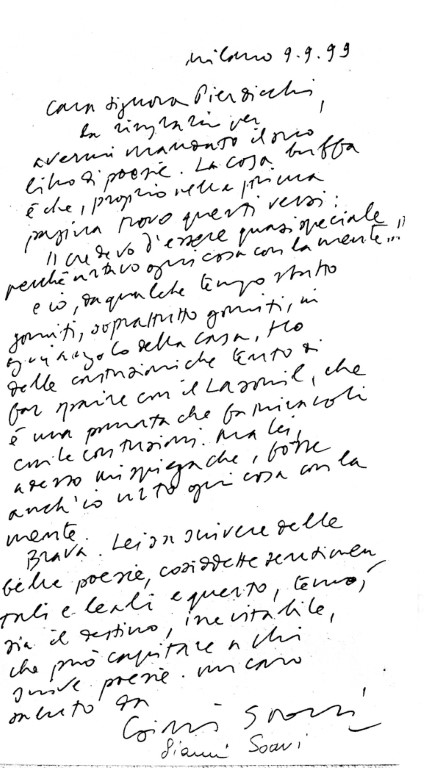 Milano 9.9.99
Cara Signora Pierdicchi,
La ringrazio per
avermi mandato il suo
libro di poesie. La cosa buffa
è che, proprio nella prima
pagina trovo questi versi:
"credevo d'essere quasi speciale
perché urtavo ogni cosa con la mente..."
e io, da qualche tempo urto
gomiti, soprattutto gomiti, in
ogni angolo della casa, ho
delle contusioni che tento di
far sparire con il Lasonil, che
è una pomata che fa miracoli
con le contusioni. Ma lei,
adesso mi spiega che, forse
anch'io urto ogni cosa con la
mente.
Brava. Lei sa scrivere delle
belle poesie, cosiddette sentimen
tali e leali e questo, temo,
sia il destino, inevitabile,
che può capitare a chi
scrive poesie. Un caro
saluto da
Gianni Soavi
Gianni Soavi